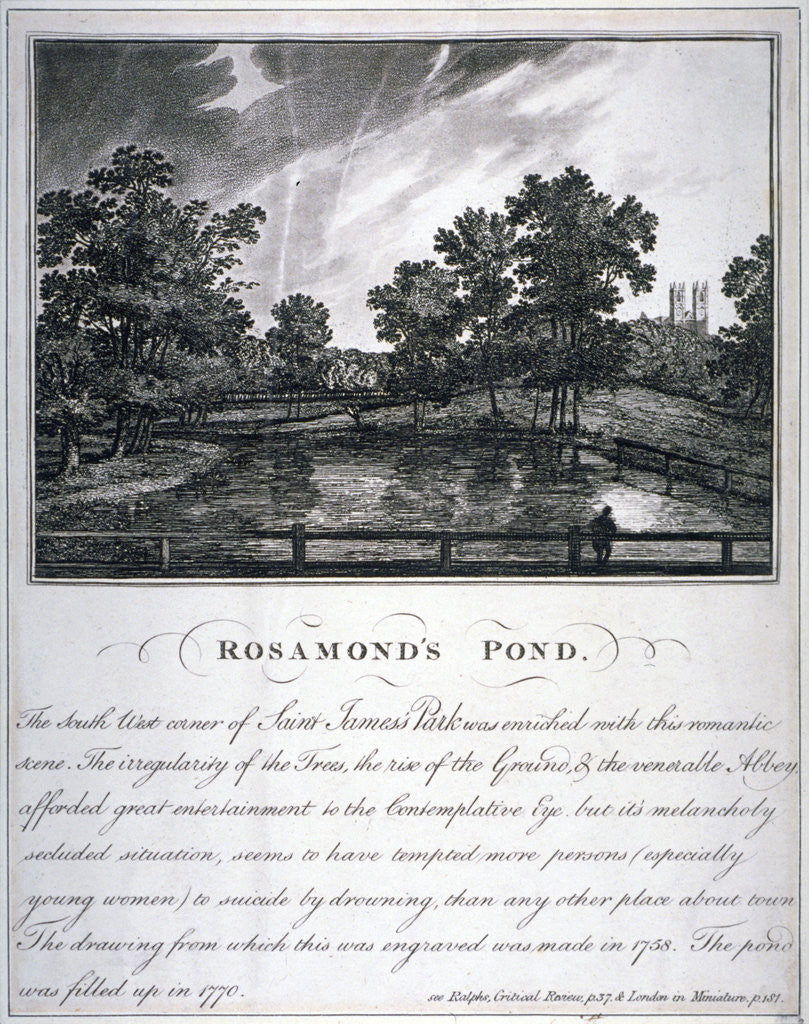 ROSAMOND'S POND.
The South West corner of Saint James's Park was enriched with this romantic
scene. The irregularity of the Trees, the rise of the Ground, & the venerable Abbey,
afforded great entertainment to the Contemplative Eye. but it's melancholy
secluded situation, seems to have tempted more persons (especially
young women) to suicide by drowning, than any other place about town
The drawing from which this was engraved was made in 1758. The pond
was filled up in 1770.
see Ralphs, Critical Review, p.37. & London in Miniature. p.181.